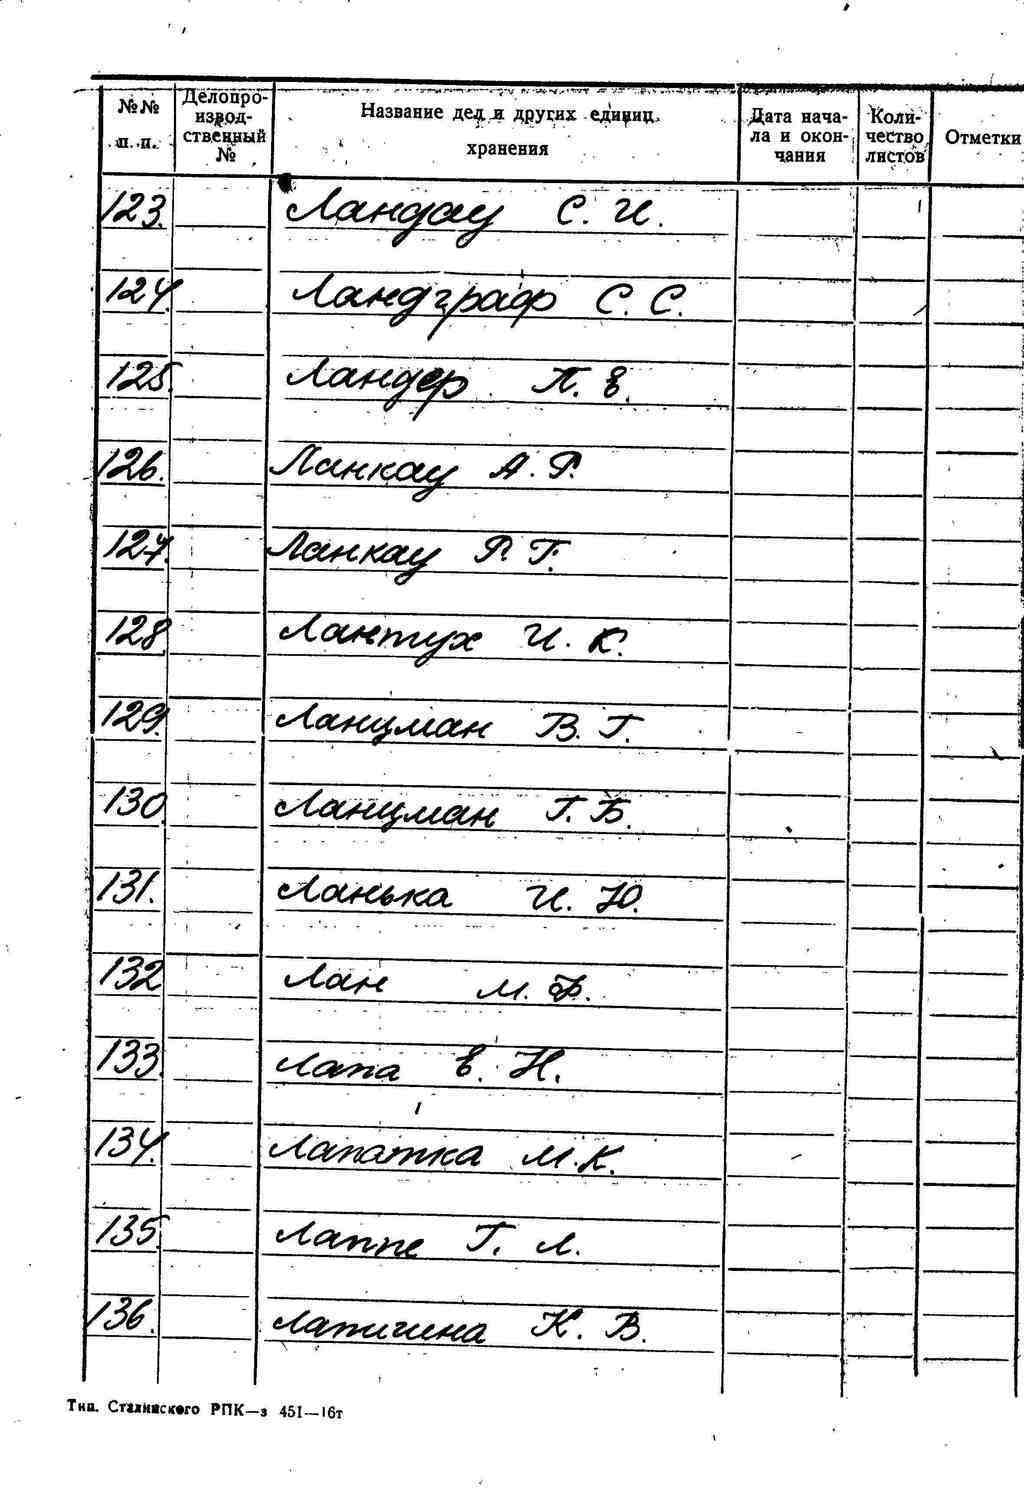 №№ п. п.
Делопро-извод-ственный №
Название дел и других единиц хранения
Дата нача-ла и окон-чания
Коли-чество листов
Отметки
123. Ландау С. И.
124. Ландграф С. С.
125. Ландер П. Е.
126. Ланкау А. Р.
127. Ланкау Р. Г.
128. Лантух И. К.
129. Ланцман В. Г.
130. Ланцман Г. Б.
131. Ланька И. Ю.
132 Лан М. Ф.
133. Лапа Е. Н.
134. Лапатка М. К.
135. Лаппе Г. Л.
136. Лапигина К. В.
Тип. Сталинского РПК—з 451—16т